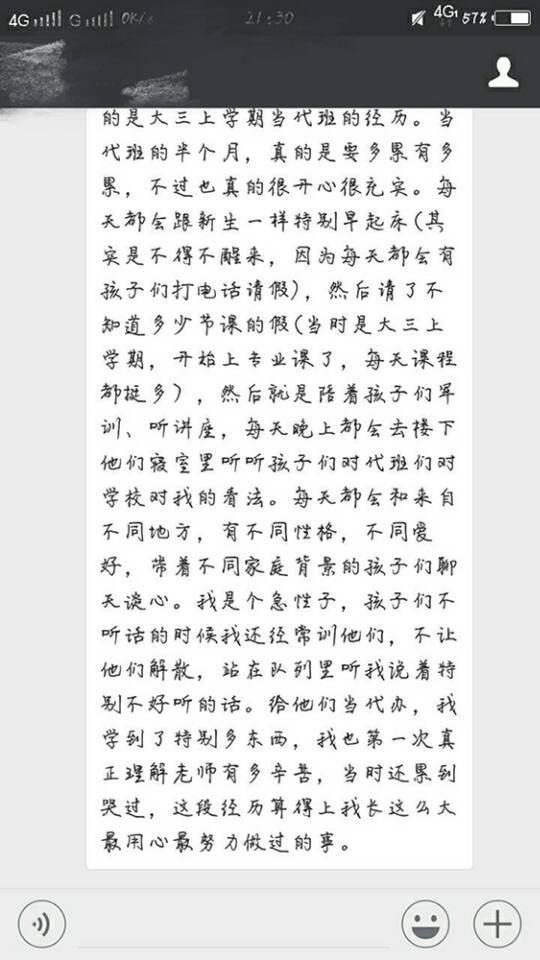 4G G OK/s 21:30 4G 57%
的是大三上学期当代班的经历。当
代班的半个月，真的是要多累有多
累，不过也真的很开心很充实。每
天都会跟新生一样特别早起床(其
实是不得不醒来，因为每天都会有
孩子们打电话请假)，然后请了不
知道多少节课的假(当时是大三上
学期，开始上专业课了，每天课程
都挺多），然后就是陪着孩子们军
训、听讲座，每天晚上都会去楼下
他们寝室里听听孩子们对代班们对
学校对我的看法。每天都会和来自
不同地方，有不同性格，不同爱
好，带着不同家庭背景的孩子们聊
天谈心。我是个急性子，孩子们不
听话的时候我还经常训他们，不让
他们解散，站在队列里听我说着特
别不好听的话。给他们当代办，我
学到了特别多东西，我也第一次真
正理解老师有多辛苦，当时还累到
哭过，这段经历算得上我长这么大
最用心最努力做过的事。